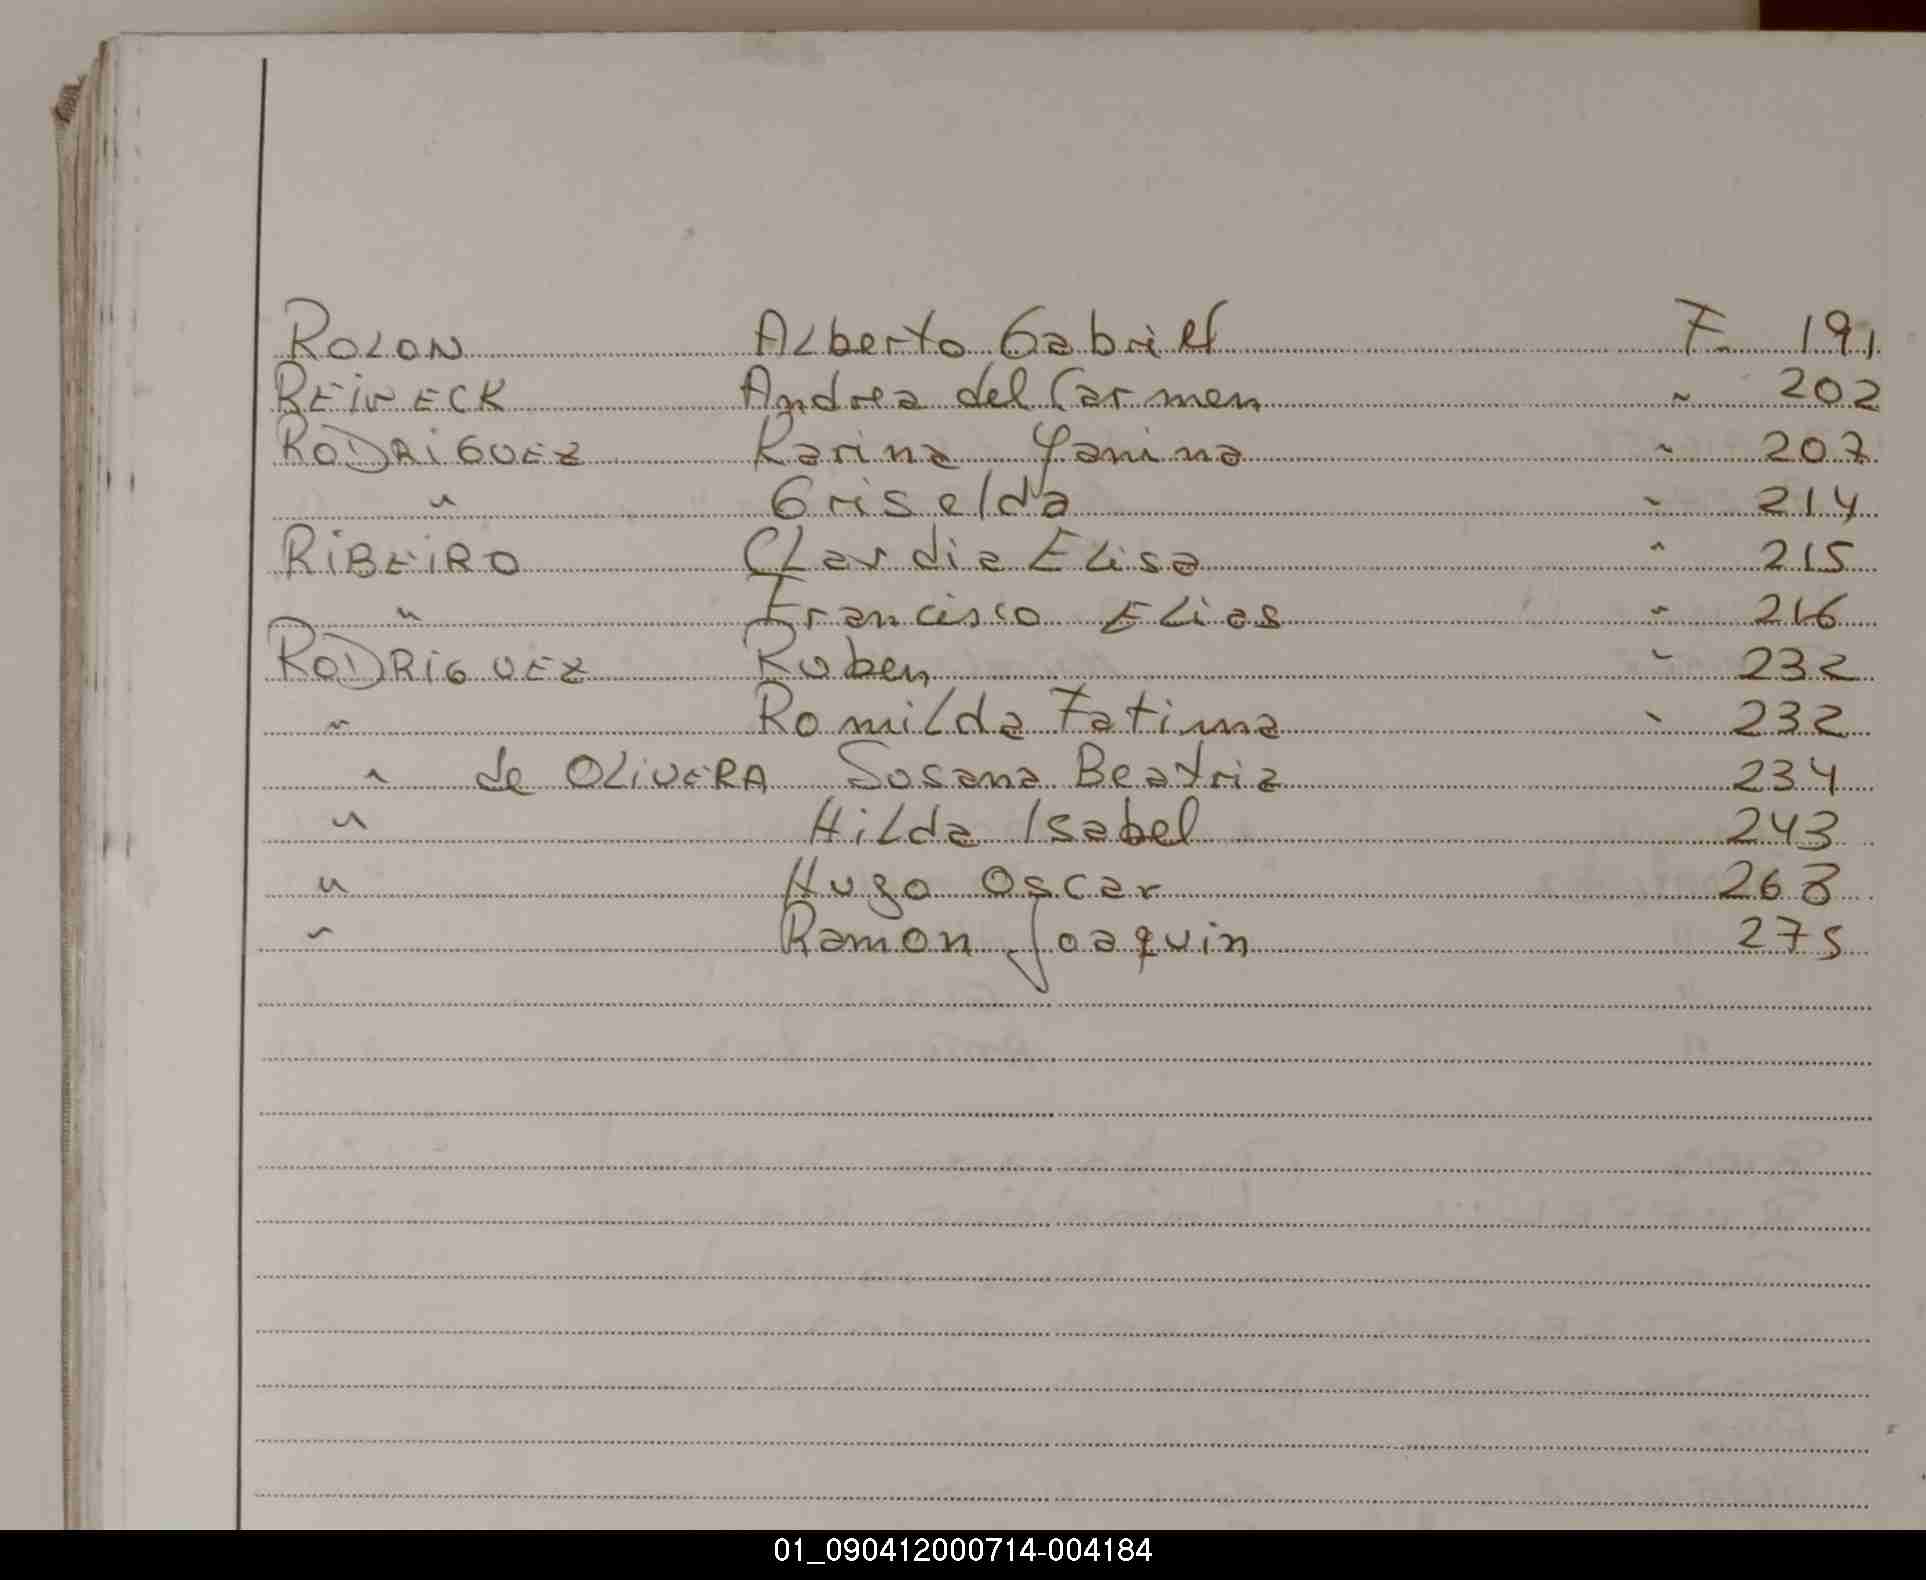 ROLON Alberto Gabriel F. 191
REINECK Andrea del Carmen " 202
RODRIGUEZ Karina Yanina " 207
" Griselda " 214
RIBEIRO Claudia Elisa " 215
" Francisco Elias " 216
RODRIGUEZ Ruben " 232
" Romilda Fatima " 232
" de OLIVERA Susana Beatriz 234
" Hilda Isabel 243
" Hugo Oscar 268
" Ramon Joaquin 275
01_090412000714-004184